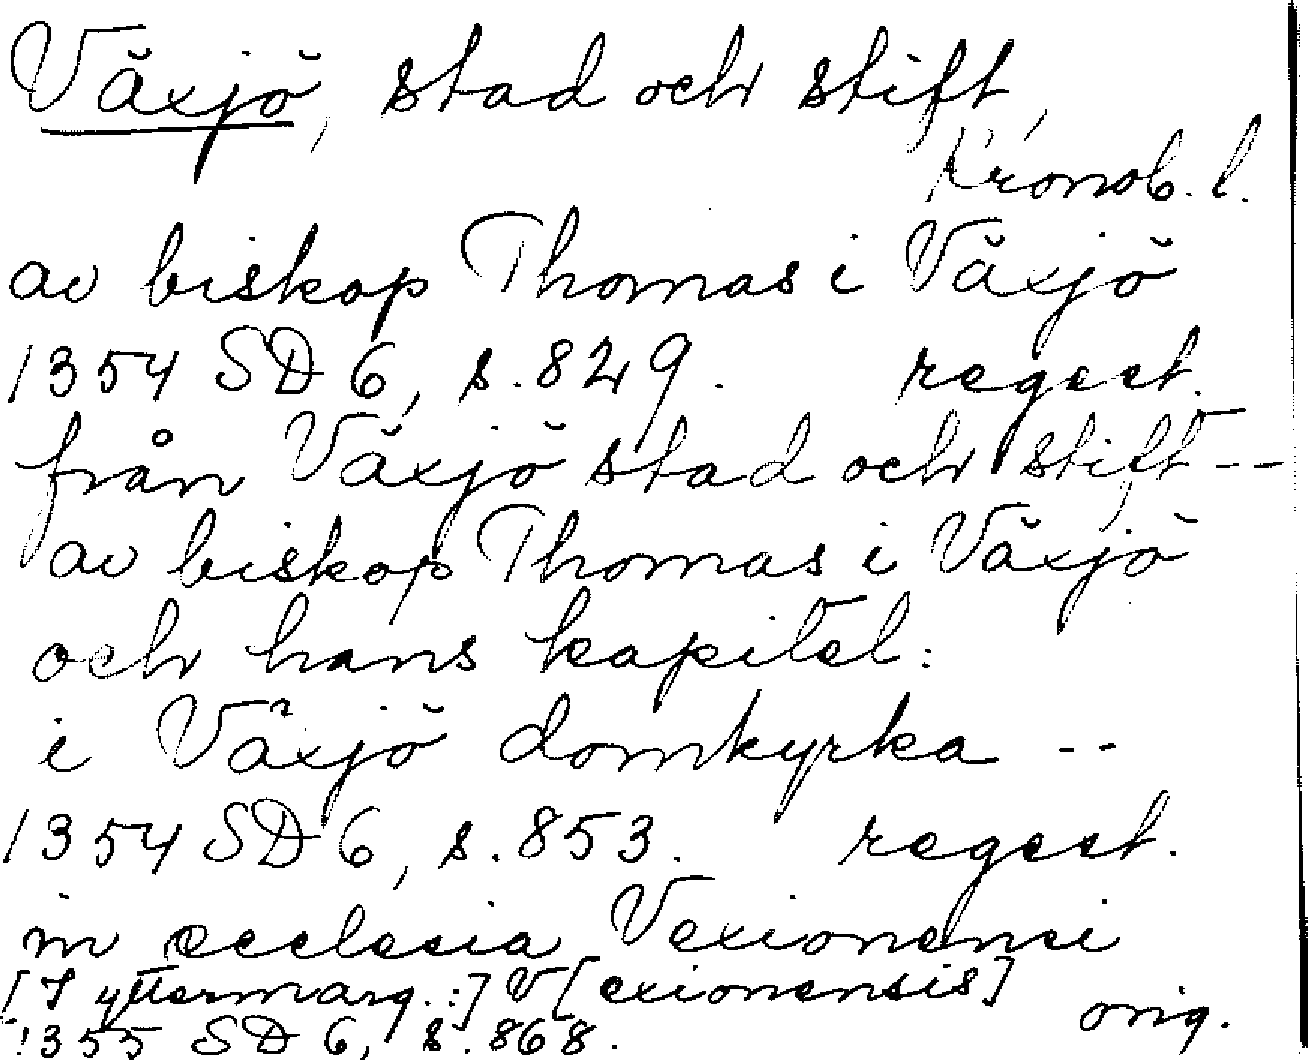 Växjö, stad och stift,
Kronob. l.
av biskop Thomas i Växjö
1354 SD 6, s. 829. regest.
från Växjö stad och stift --
av biskop Thomas i Växjö
och hans kapitel:
i Växjö domkyrka --
1354 SD 6, s. 853. regest.
in ecclesia Vexionensi
[I yttermarg.:] V[exionensis]
orig.
1355 SD 6, s. 868.